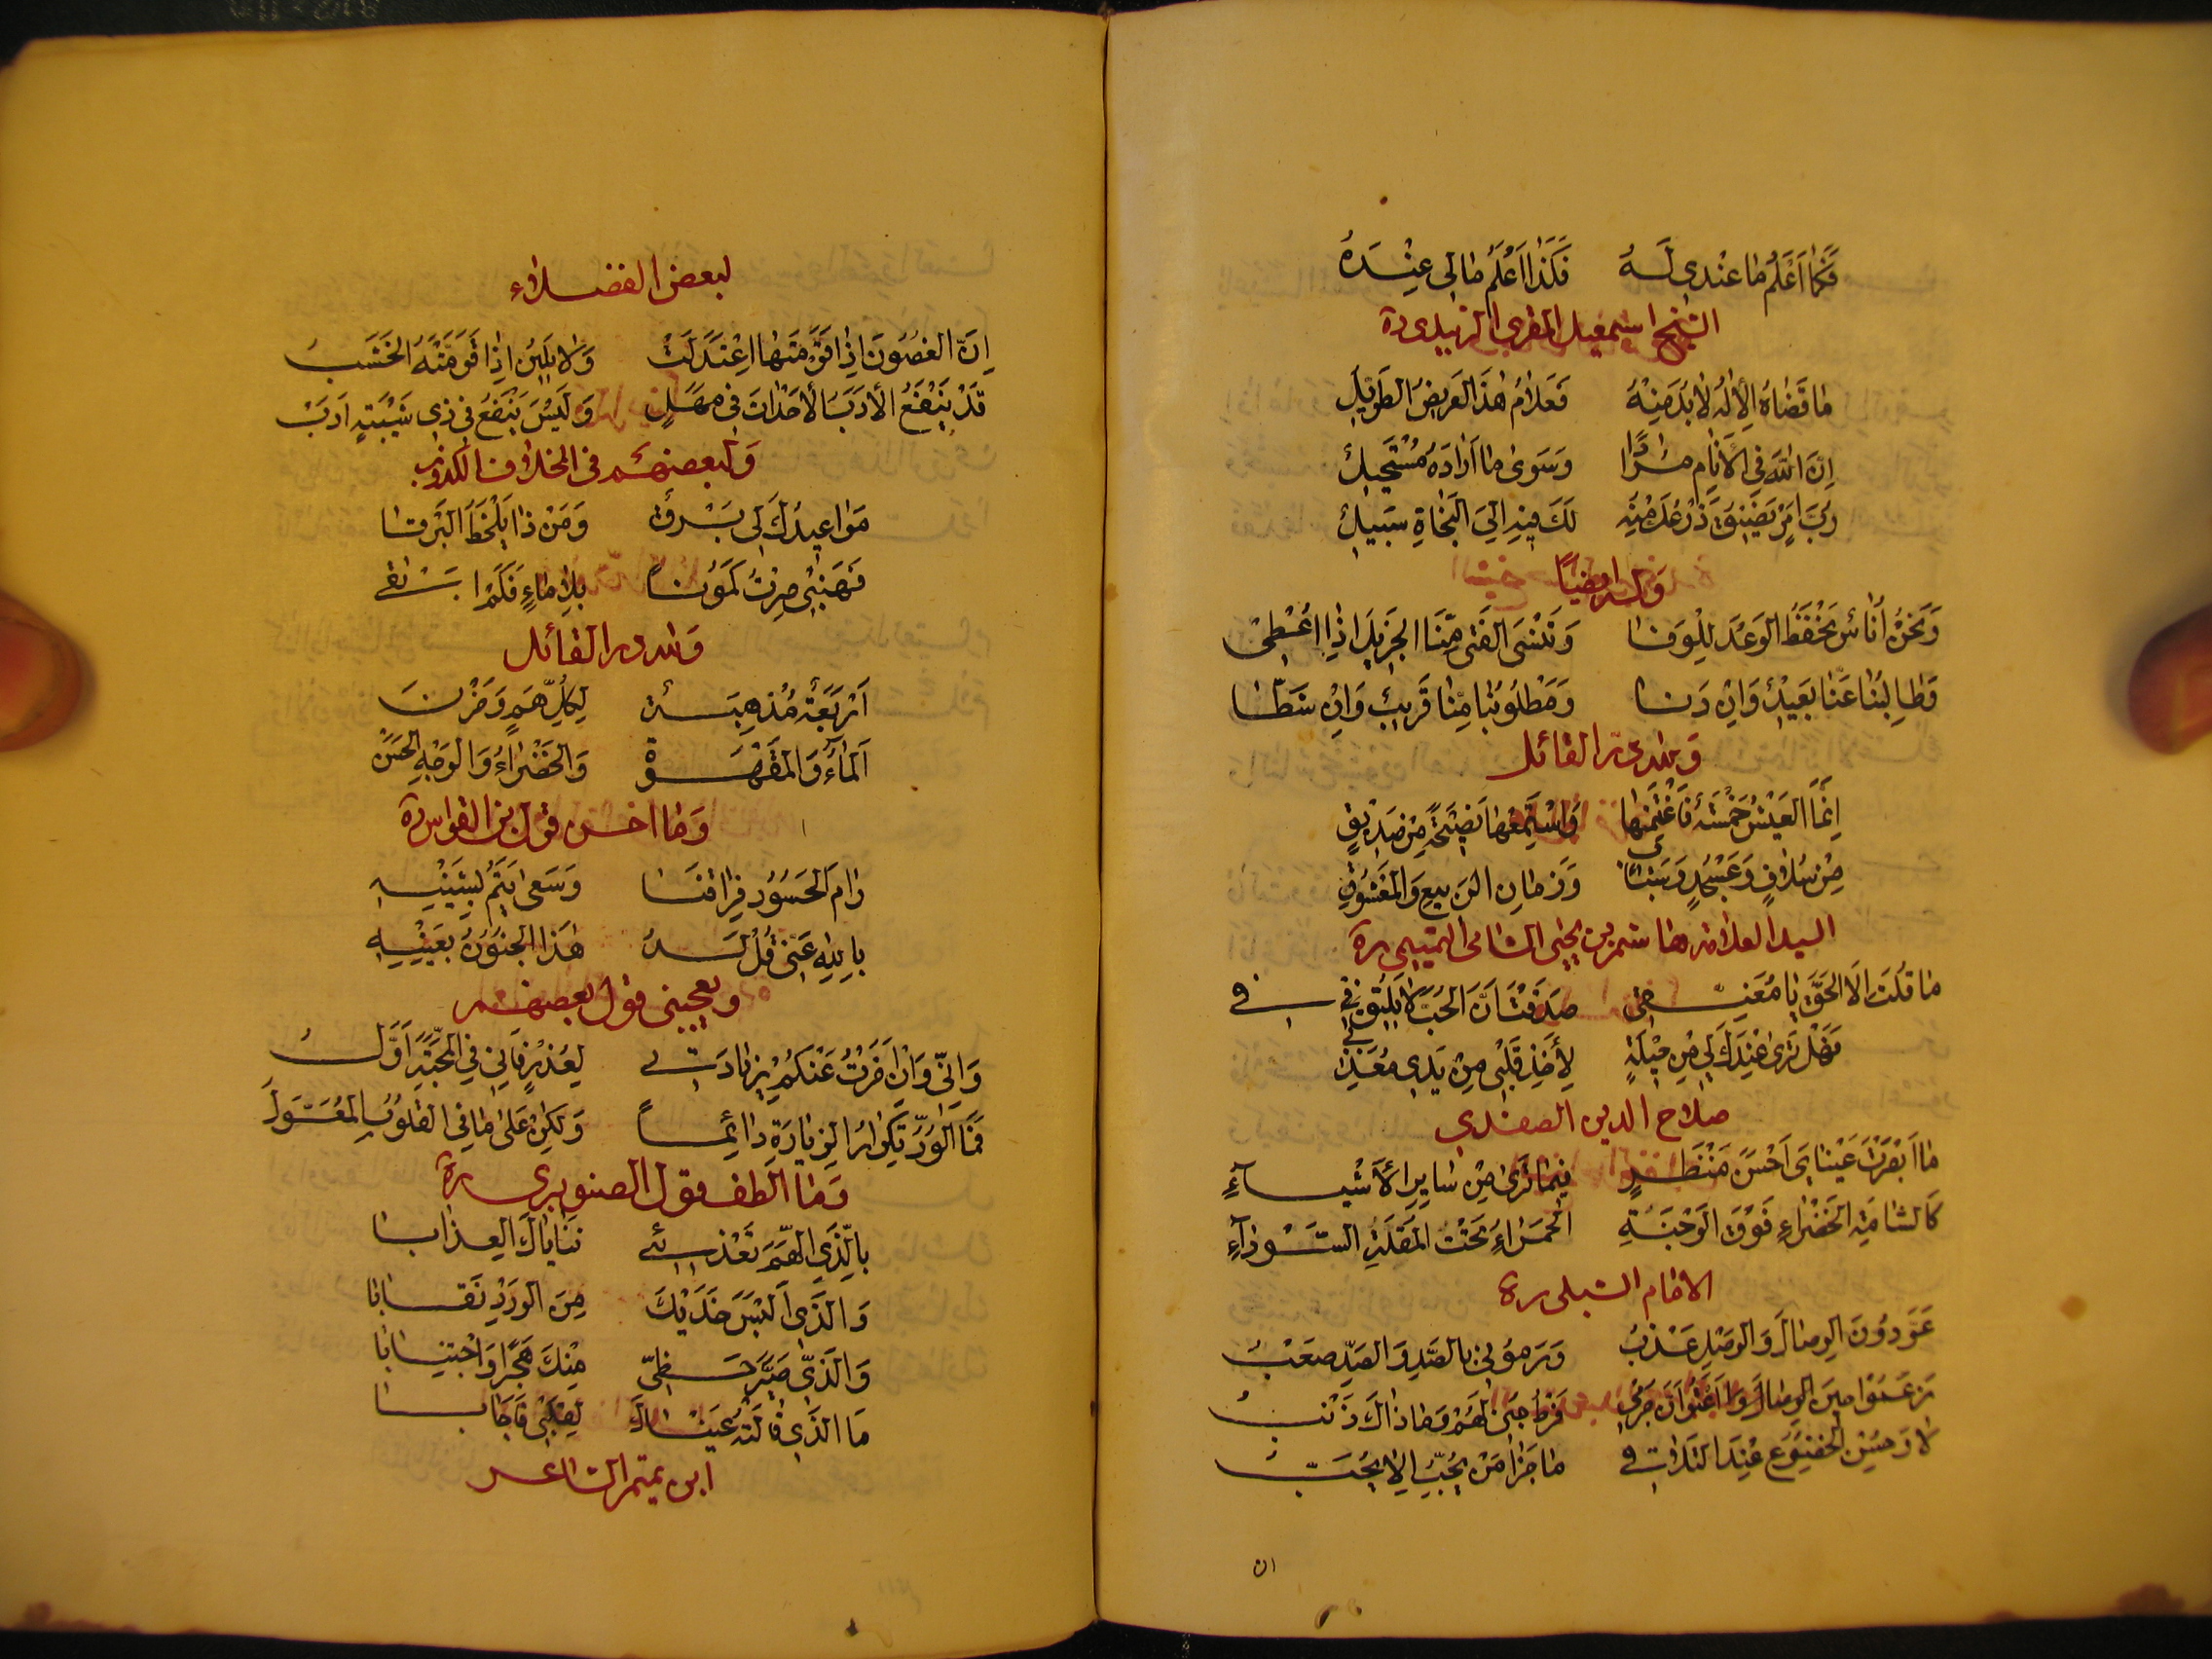 فَكَمَا اَعْلَمُ مَا عِنْدِي لَهُ فَكَذَا اَعْلَمُ مَا لِي عِنْدَهُ
الشيخ اسمعيل المقري الزبيدي ره
مَا قَضَاهُ الاِلٰهُ لَا بُدَّ مِنْهُ فَعَلَامَ هٰذَا العَرِيضُ الطَّوِيلُ
اِنَّ اللهَ فِي الاَنَامِ مُرَادًا وَسِوَى مَا اَرَادَهُ مُسْتَحِيلُ
رُبَّ اَمْرٍ يَضِيقُ ذَرْعُكَ مِنْهُ لَكَ مِنْهُ اِلَى النَّجَاةِ سَبِيلُ
وله ايضًا
وَنَحْنُ اُنَاسٌ نَحْفَظُ الوَعْدَ لِلْوَفَا وَنَنْسَى الفَتَى مِنَّا الجَزِيلَ اِذَا اَعْطَى
وَطَالِبُنَا عَنَّا بَعِيدٌ وَاِنْ دَنَا وَمَطْلُوبُنَا مِنَّا قَرِيبٌ وَاِنْ شَطَّا
ولله در القائل
اِنَّمَا العَيْشُ خَمْسَةٌ فَاغْتَنِمْهَا وَاسْتَمِعْهَا نَصِيحَةً مِنْ صَدِيقٍ
مِنْ سُلَافٍ وَعَسْجَدٍ وَشَبَابٍ وَزَمَانِ الرَّبِيعِ وَالمَعْشُوقِ
السيد العلامة هاشم بن يحيى الشامي ره
مَا قُلْتُ اِلَّا الحَقَّ يَا مُعَنِّفِي صَدَقْتَ اَنَّ الحُبَّ لَا يَلِيقُ فِي
فَهَلْ تَرَى عِنْدَكَ لِي مِنْ حِيلَةٍ لِاَخْذِ قَلْبِي مِنْ يَدَي مُعَذِّبِي
صلاح الدين الصفدي
مَا اَبْصَرَتْ عَيْنَايَ اَحْسَنَ مَنْظَرٍ فِيمَا تَرَى مِنْ سَايِرِ الاَشْيَاءِ
كَالشَّامَةِ الخَضْرَاءِ فَوْقَ الوَجْنَةِ الحَمْرَاءِ تَحْتَ المُقْلَةِ السَّوْدَاءِ
الامام الشبلي ره
عَوَّدُونِي الوِصَالَ وَالوَصْلُ عَذْبُ وَرَمَوْنِي بِالصَّدِّ وَالصَّدُّ صَعْبُ
زَعَمُوا حِينَ الوِصَالِ اَنَّ جُرْمِي فَرْطُ حُبِّي لَهُمْ وَمَا ذَاكَ ذَنْبُ
لَا وَحُسْنِ الخُضُوعِ عِنْدَ التَّلَاقِي مَا جَزَا مَنْ يُحِبُّ اِلَّا يُحَبُّ
ان
لبعض الفضلاء
اِنَّ الغُصُونَ اِذَا قَوَّمْتَهَا اعْتَدَلَتْ وَلَا يَلِينُ اِذَا قَوَّمْتَهُ الخَشَبُ
قَدْ يَنْفَعُ الاَدَبُ الاَحْدَاثَ فِي مَهَلٍ وَلَيْسَ يَنْفَعُ فِي ذِي شَيْبَةٍ اَدَبُ
ولبعضهم في المخلاف الكذوب
مَوَاعِيدُكَ لِي بَرْقٌ وَمَنْ ذَا يَلْحَظُ البَرْقَا
فَهَبْنِي صِرْتُ كَمُّونًا بِلَا مَاءٍ فَكَمْ اَبْقَى
ولله در القائل
اَرْبَعَةٌ مُذْهِبَةٌ لِكُلِّ هَمٍّ وَحَزَنْ
اَلمَاءُ وَالقَهْوَةُ وَالخَضْرَاءُ وَالوَجْهُ الحَسَنْ
وما احسن قول بن القواس ره
رَامَ الحَسُودُ فِرَاقَنَا وَسَعَى يَنُمُّ بِبَيْنِهِ
بِاللهِ عَنِّي قُلْ لَهُ هٰذَا الجُنُونُ بِعَيْنِهِ
ويعجبني قول بعضهم
وَاِنِّي وَاِنْ اَخَّرْتُ عَنْكُمْ زِيَارَتِي لِعُذْرٍ فَاِنِّي فِي المَحَبَّةِ اَوَّلُ
فَمَا الوُدُّ تَكْرَارُ الزِّيَارَةِ دَائِمًا وَلٰكِنْ عَلَى مَا فِي القُلُوبِ المُعَوَّلُ
وما الطف قول الصنوبري ره
بِالَّذِي اَلْهَمَ تَعْذِيبِي ثَنَايَاكَ العِذَابَا
وَالَّذِي اَلْبَسَ خَدَّيْكَ مِنَ الوَرْدِ نَقَابَا
وَالَّذِي صَيَّرَ حَظِّي مِنْكَ هَجْرًا وَاجْتِنَابَا
مَا الَّذِي قَالَتْهُ عَيْنَاكَ لِقَلْبِي فَاَجَابَا
ابن تميم الشاعر